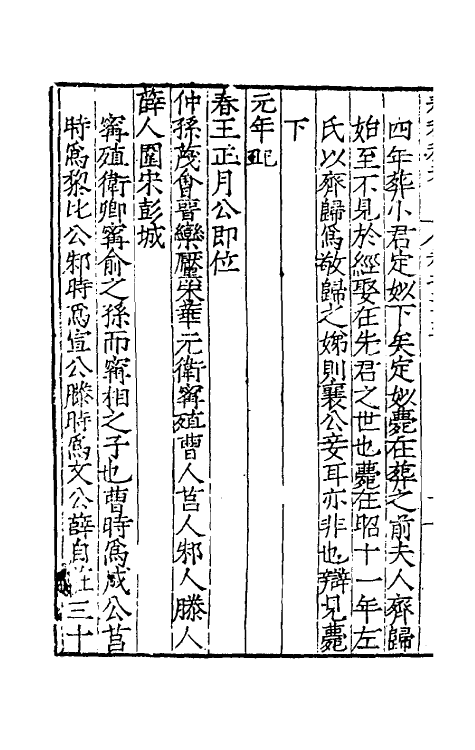 四年葬小君定姒下矣定姒薨在葬之前夫人齊歸
始至不見於經娶在先君之世也薨在昭十一年左
氏以齊歸爲敬歸之娣則襄公妾耳亦非也辯見薨
下
元年
春王正月公即位
仲孫蔑會晉欒黶宋華元衛甯殖曹人莒人邾人滕人
薛人圍宋彭城
甯殖衛卿甯俞之孫而甯相之子也曹時爲成公莒
時爲黎比公邾時爲宣公滕時爲文公薛自莊三十